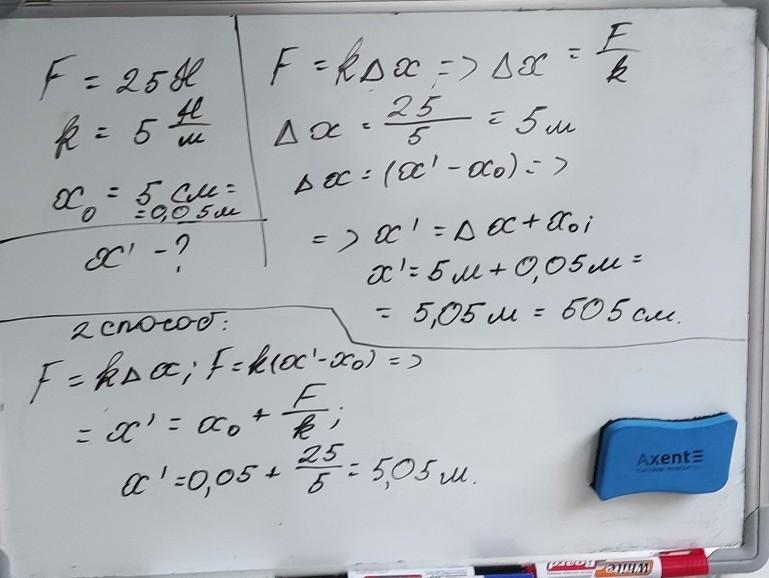 F = 25 Н
k = 5 Н/м
x₀ = 5 см =
= 0,05 м
x' - ?
F = kΔx => Δx = F/k
Δx = 25/5 = 5 м
Δx = (x' - x₀) =>
=> x' = Δx + x₀;
x' = 5 м + 0,05 м =
= 5,05 м = 505 см.
2 способ:
F = kΔx; F = k(x' - x₀) =>
= x' = x₀ + F/k;
x' = 0,05 + 25/5 = 5,05 м.
Axent
White
Board